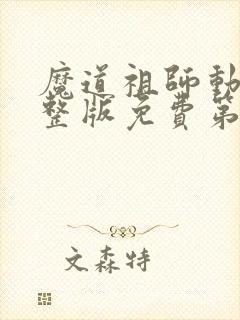 魔道祖師動
整版免費第
文森特